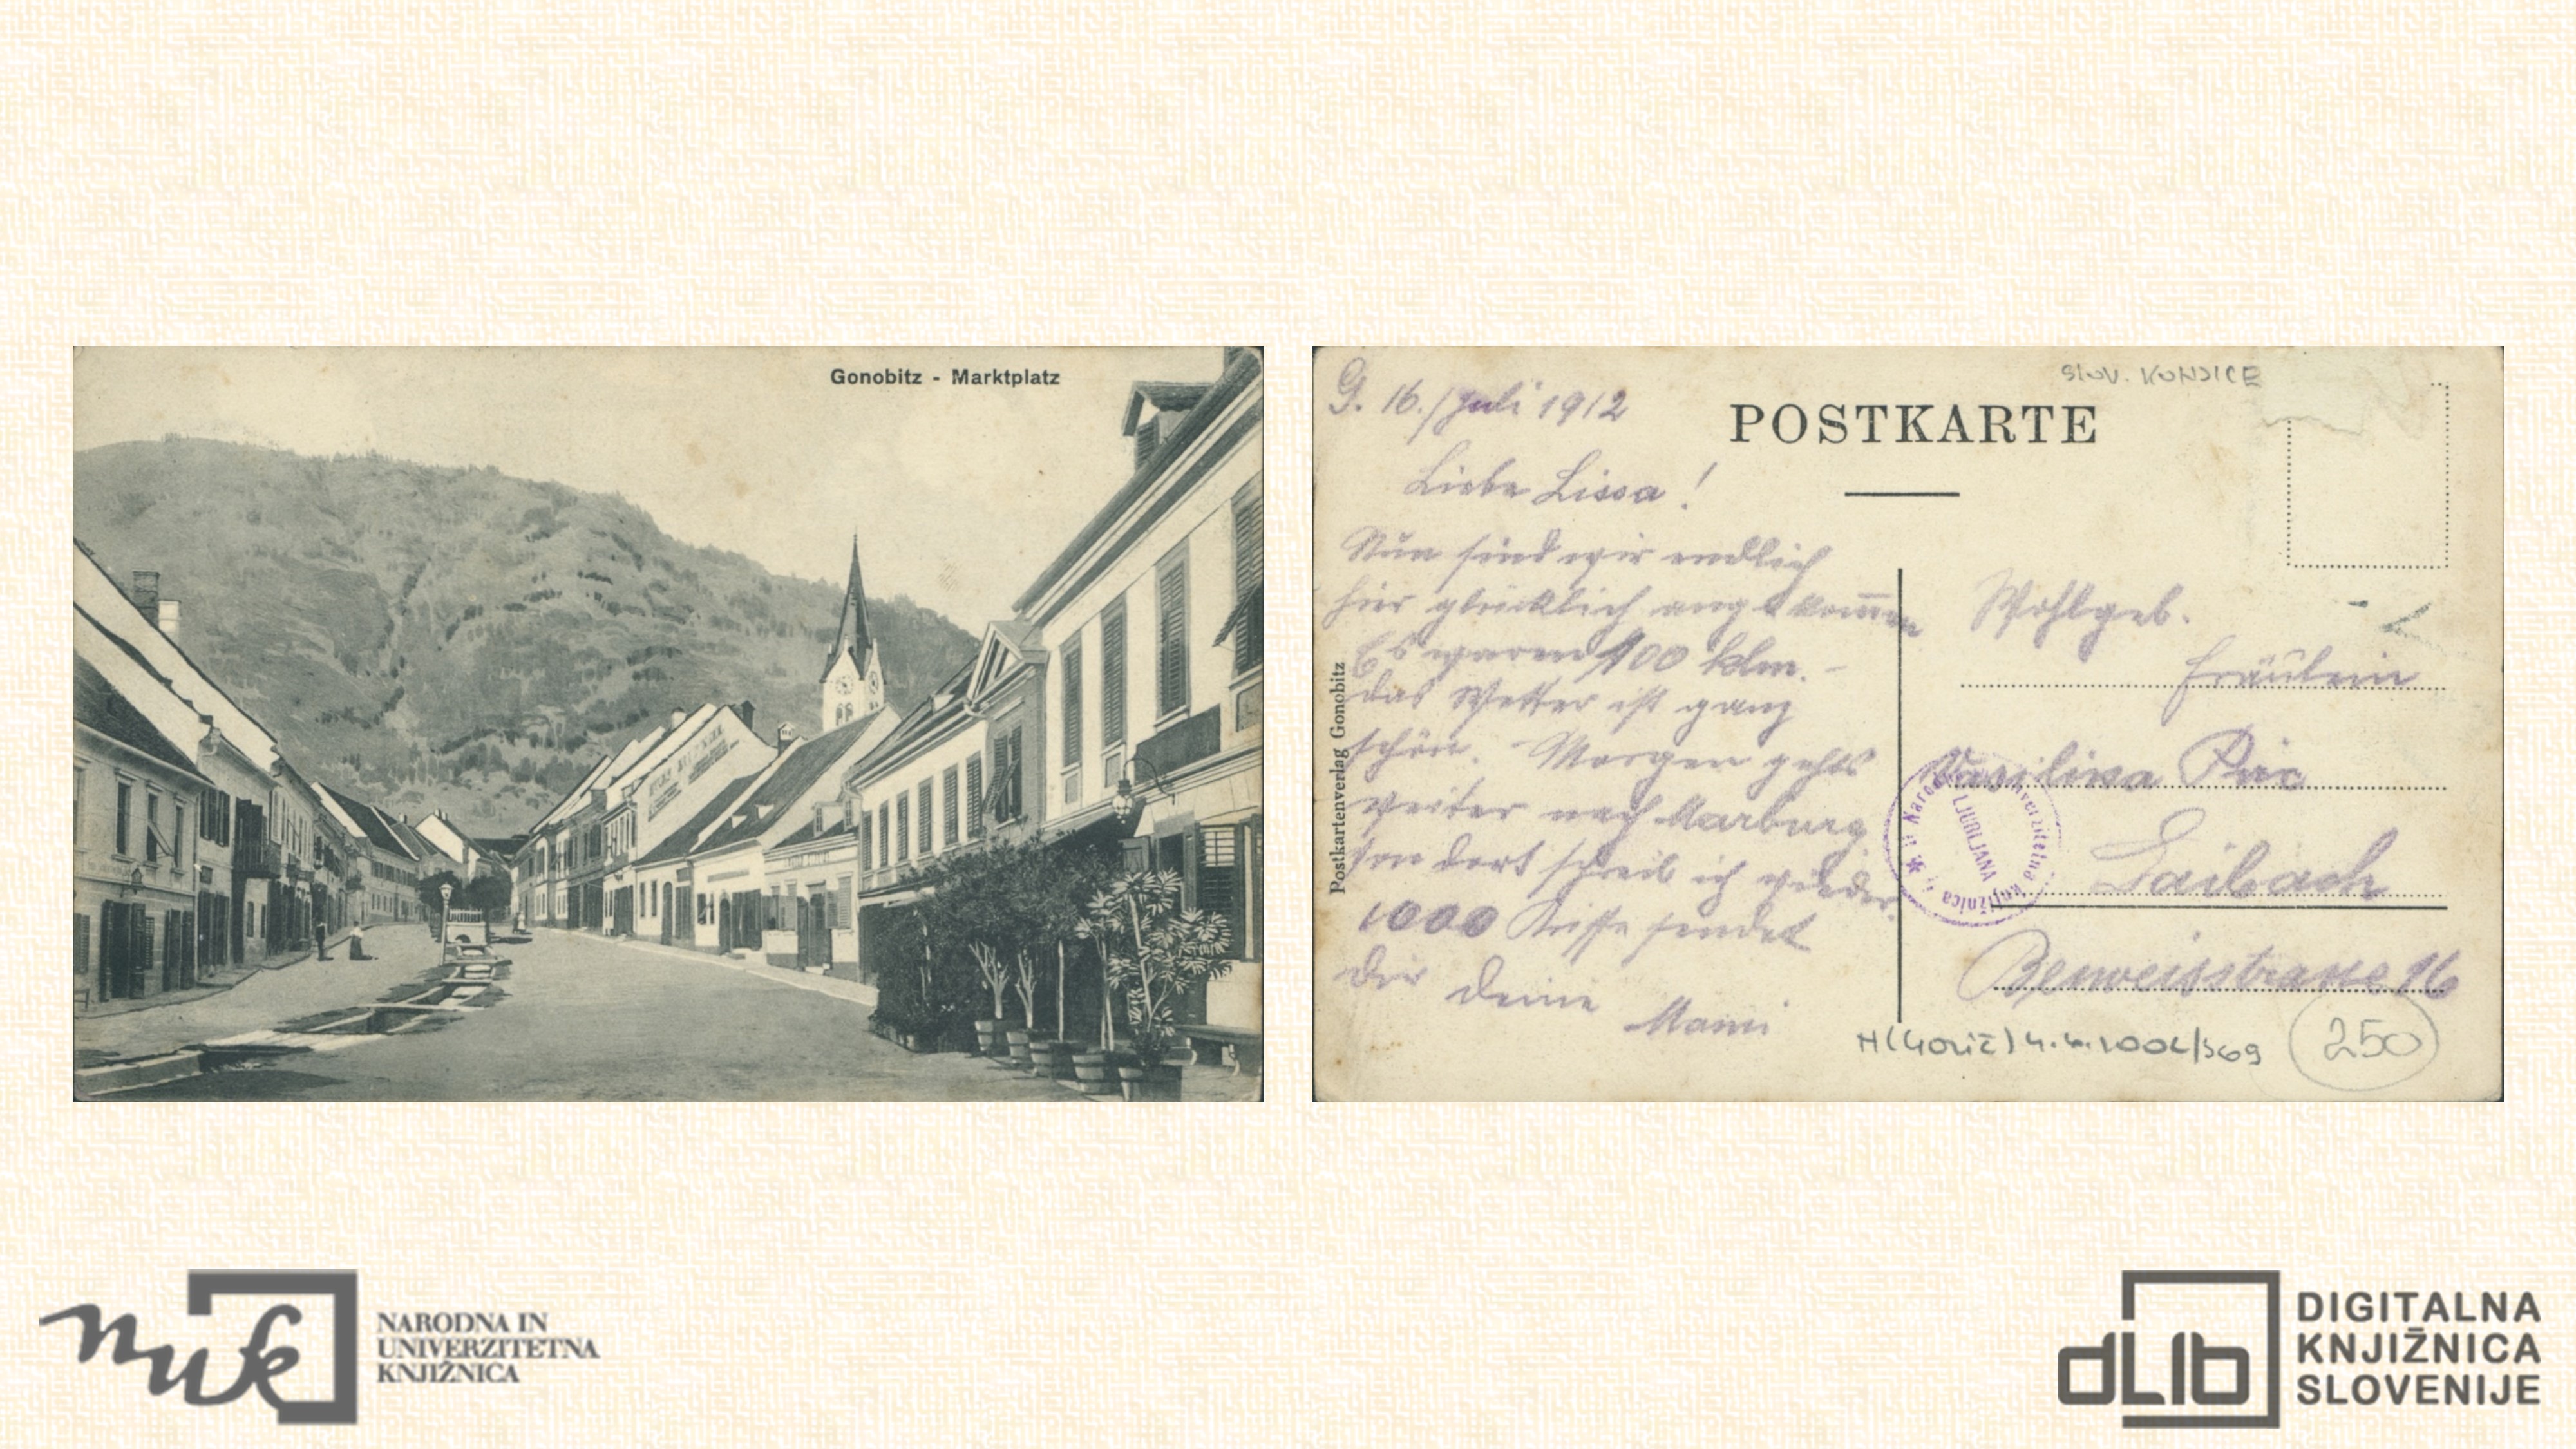 Gonobitz - Marktplatz
G. 16./Juli 1912
Liebe Lissa!
Nun sind wir endlich
hier glücklich angekommen
Es waren 100 klm. -
das Wetter ist ganz
schön. - Morgen gehts
weiter nach Marburg
von dort schreib ich wieder.
1000 Küsse sendet
Dir Deine Mami
Postkartenverlag Gonobitz
SLOV. KONJICE
POSTKARTE
Wohlgeb.
Fräulein
Vasilissa
Laibach
Bleiweisstrasse 16
Narodna univerzitetna knjižnica
LJUBLJANA
250
nuk
NARODNA IN
UNIVERZITETNA
KNJIŽNICA
dLib
DIGITALNA
KNJIŽNICA
SLOVENIJE